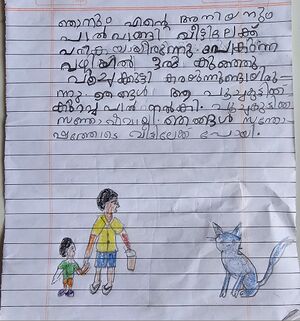 ഞാനും എന്റെ അനിയനും
പാൽ വാങ്ങി വീട്ടിലേക്ക്
വരികയായിരുന്നു. പോകുന്ന
വഴിയിൽ ഒരു കുഞ്ഞു
പൂച്ചക്കുട്ടി കരഞ്ഞുകൊണ്ടിരി
ന്നു. ഞങ്ങൾ ആ പൂച്ചകുട്ടിക്ക്
കുറച്ച് പാൽ നൽകി. പൂച്ചകുട്ടിക്ക്
സന്തോഷമായി. ഞങ്ങൾ സന്തോ
ഷത്തോടെ വീട്ടിലേക്ക് പോയി.